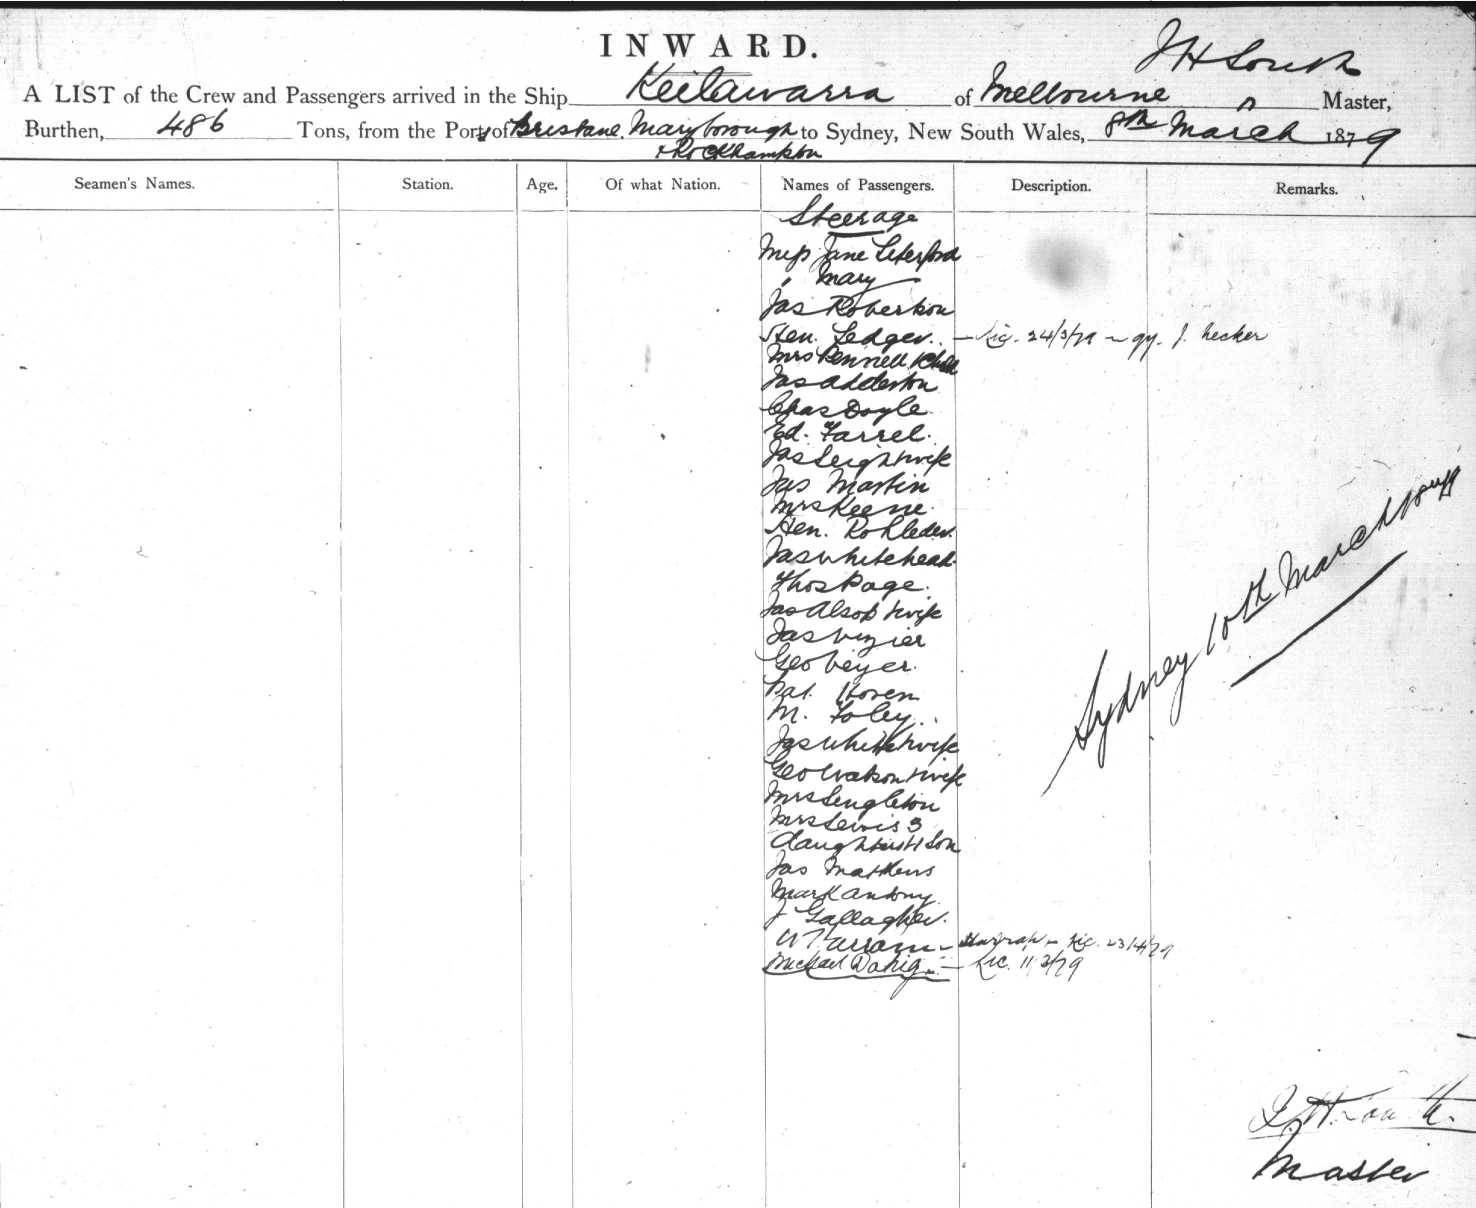 INWARD.
J H South
A LIST of the Crew and Passengers arrived in the Ship Keilawarra of Melbourne Master,
Burthen, 486 Tons, from the Ports of Brisbane, Maryborough to Sydney, New South Wales, 8th March 1879
& Rockhampton
Seamen's Names. Station. Age. Of what Nation. Names of Passengers. Description. Remarks.
Steerage
Miss Jane
" Mary
Jas Robertson
Hen. Ledger. - Lic. 24/3/79 - J. Necker
Mrs Pennell 1 Child
Jas Adderton
Chas Doyle
Ed. Farrel.
Jas Leigh & wife
Jas Martin
Mrs Keene
Hen. Rohleder.
Jas Whitehead
Thos Page.
Jas Alsop & wife
Jas Vizier
Geo Veyer.
Pat. Horen
M. Foley.
Jas White & wife
Geo Watson & wife
Mrs Singleton
Mrs Lewis 3
daughters & 1 Son
Jas Mathews
Mark Antony
J Gallagher.
W - Lic. 23/4/79
Michael - Lic. 11/3/79
Sydney 10th March 1879
J. H. South.
Master